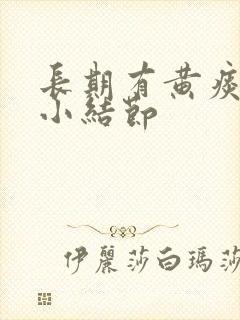 長期有黃痰
小結節
伊麗莎白瑪莎